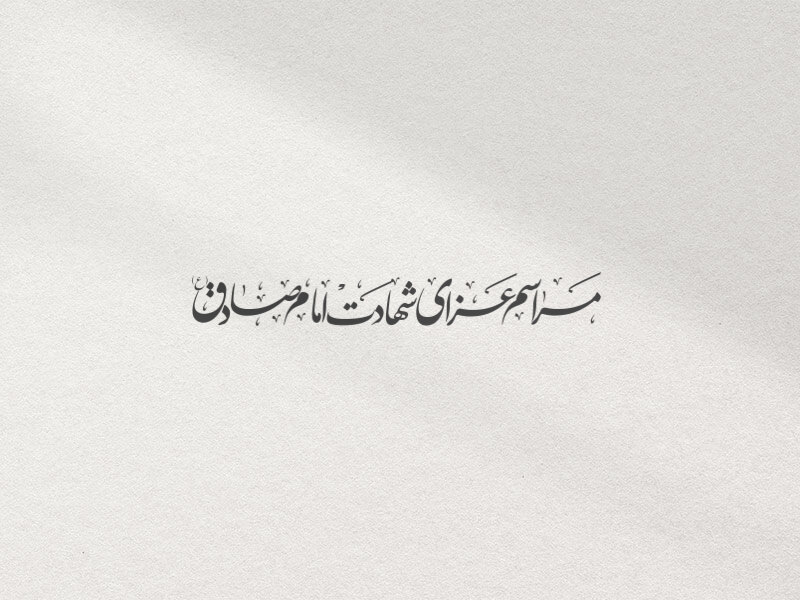 مراسم عزای شهادت امام صادق (ع)